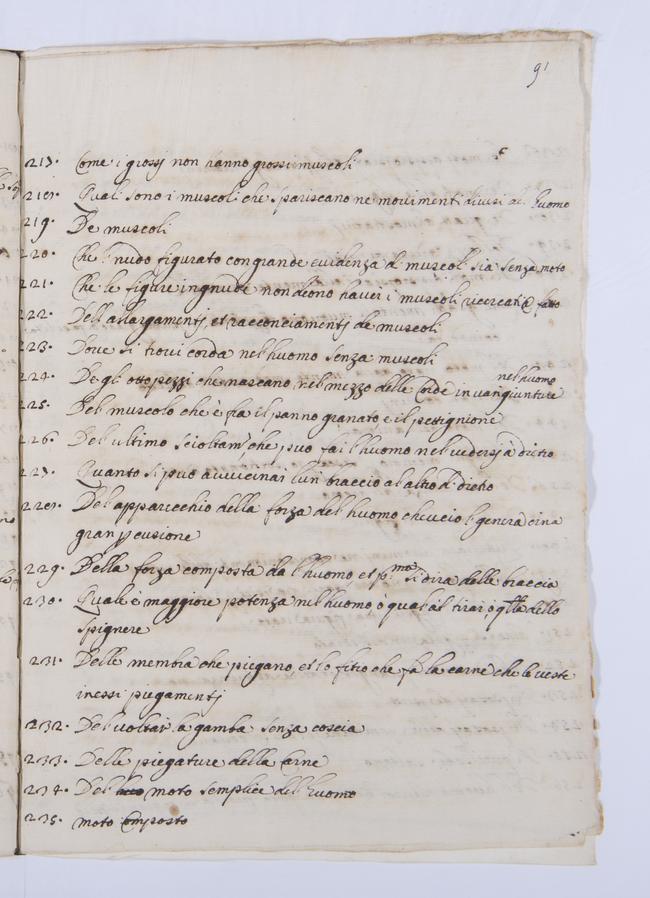 91
217. Come i grossi non hanno grossi muscoli
218. Quali sono i muscoli che spariscano ne movimenti divisi del huomo
219. De muscoli
220. Che l nudo figurato con grande evidenza di muscoli sia senza moto
221. Che le figure ingnude non deono haver i muscoli ricercati
222. Dell allargamenti, et racconciamenti de muscoli
223. Dove si trovi corda nel huomo senza muscoli
nel huomo
224. De gli otto pezzi che nascano nel mezzo delle corde in varie giunture
225. Del muscolo che è fra el panno granato e il pettignione
226. Del ultimo scioltam.to che puo far l huomo nel vedersi à dietro
227. Quanto si può avvicinar l un braccio al altro di dietro
228. Del apparecchio della forza del huomo che vuol generar
gran percusione
229. Della forza composta da l huomo, et p.ma si dira delle braccia
230. Quale è maggiore potenza nel huomo, ò qual del tirar, ò q.lla dello
spignere
231. Delle membra che piegano, et che fa la carne che le veste
in essi piegamenti
232. Del voltar la gamba senza coscia
233. Delle piegature della carne
234. Del moto semplice del huomo
235. moto composto